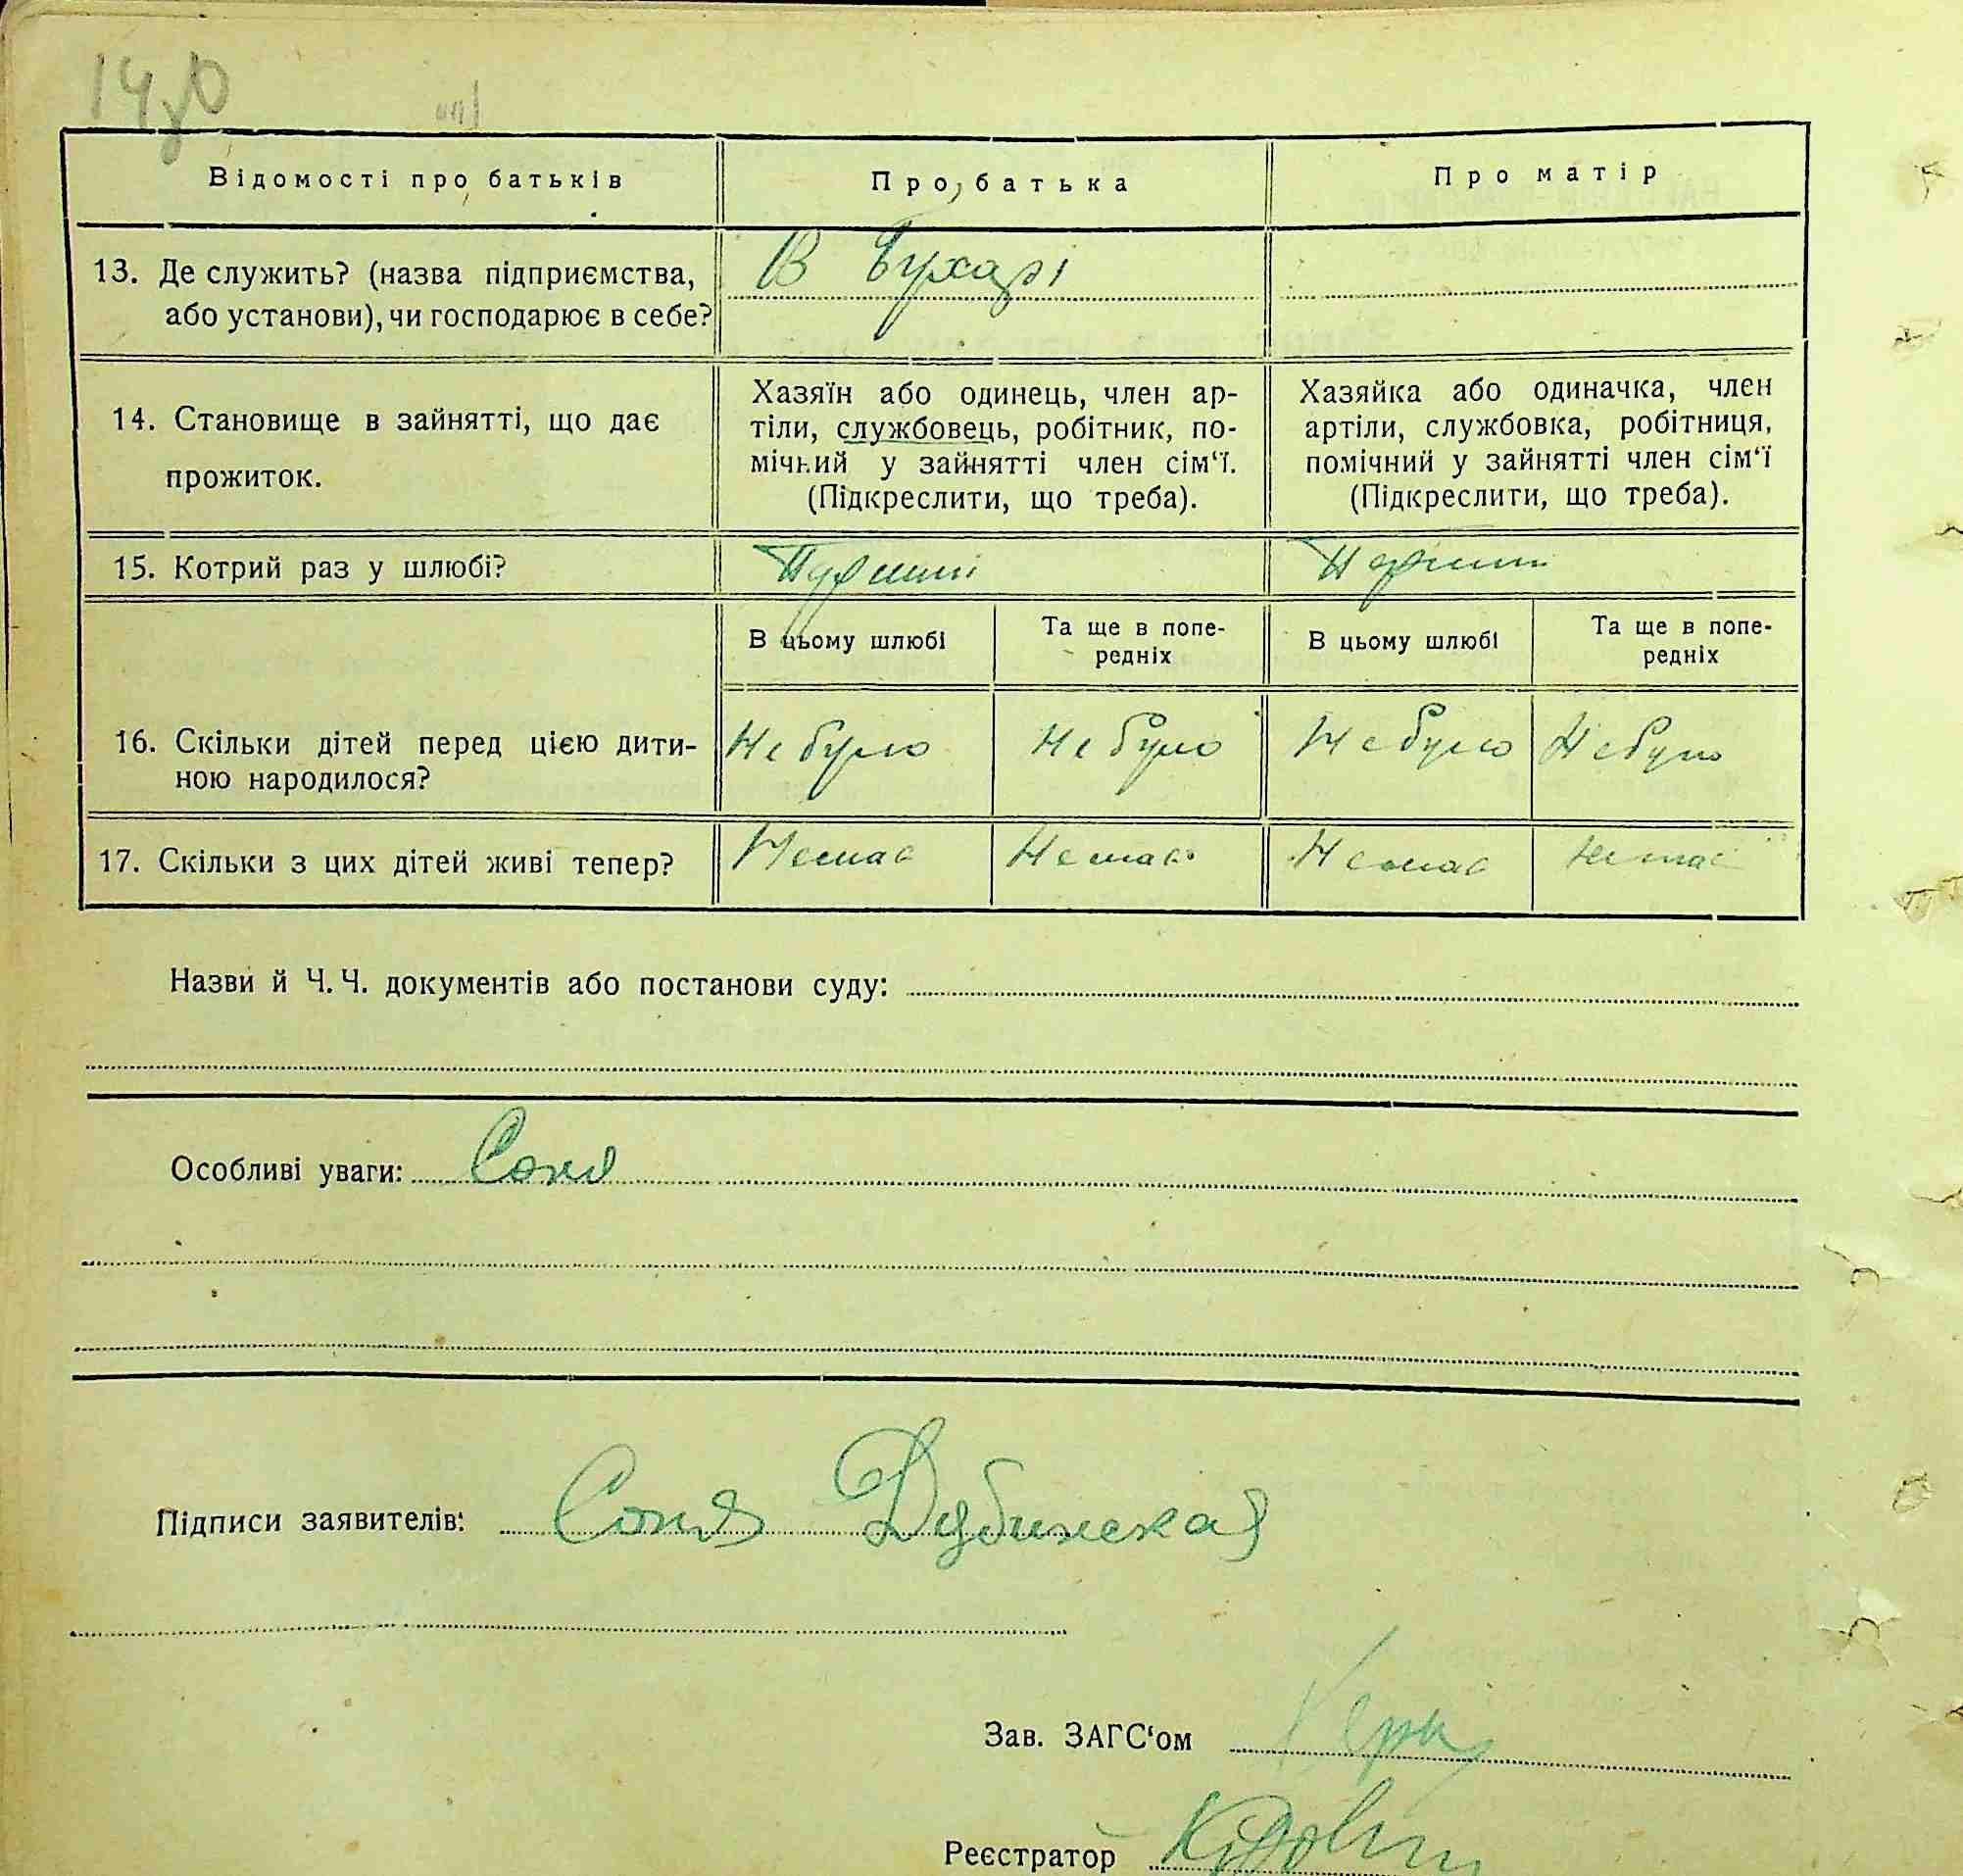 Відомості про батьків
Про батька
Про матір
13. Де служить? (назва підприємства,
або установи), чи господарює в себе?
В Бухарі
14. Становище в зайнятті, що дає
прожиток.
Хазяїн або одинець, член ар-
тіли, службовець, робітник, по-
мічний у зайнятті член сім‘ї.
(Підкреслити, що треба).
Хазяйка або одиначка, член
артіли, службовка, робітниця,
помічний у зайнятті член сім‘ї
(Підкреслити, що треба).
15. Котрий раз у шлюбі?
Перший
Перший
В цьому шлюбі
Та ще в попе-
редніх
В цьому шлюбі
Та ще в попе-
редніх
16. Скільки дітей перед цією дити-
ною народилося?
Не було
Не було
Не було
Не було
17. Скільки з цих дітей живі тепер?
Немає
Немає
Немає
Немає
Назви й Ч. Ч. документів або постанови суду:
Особливі уваги: Соня
Підписи заявителів: Соня Дубинская
Зав. ЗАГС‘ом
Реєстратор